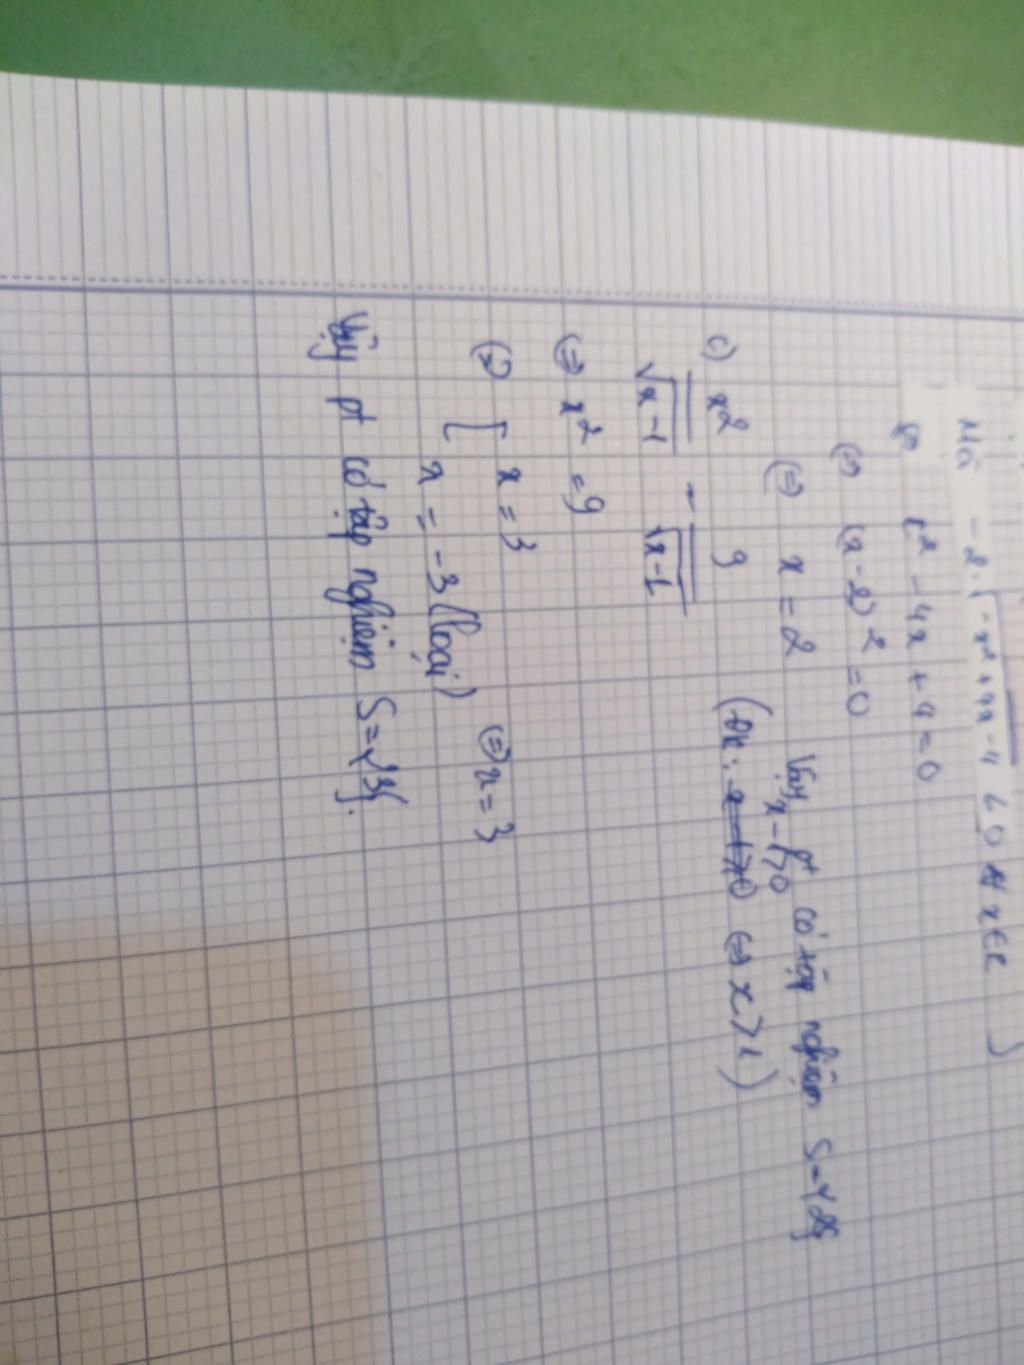 Mà -2.√-x²+4x-4 < 0 ∀x∈R )
x² - 4x + 4 = 0
⇔ (x-2)² = 0
⇔ x = 2 Vậy pt có tập nghiệm S={2}
c) x²/√x-1 = 9/√x-1 (ĐK: x-1>0 ⇔ x>1)
⇔ x² = 9
⇔ [ x = 3
x = -3 (loại) ⇔ x = 3
Vậy pt có tập nghiệm S={3}.